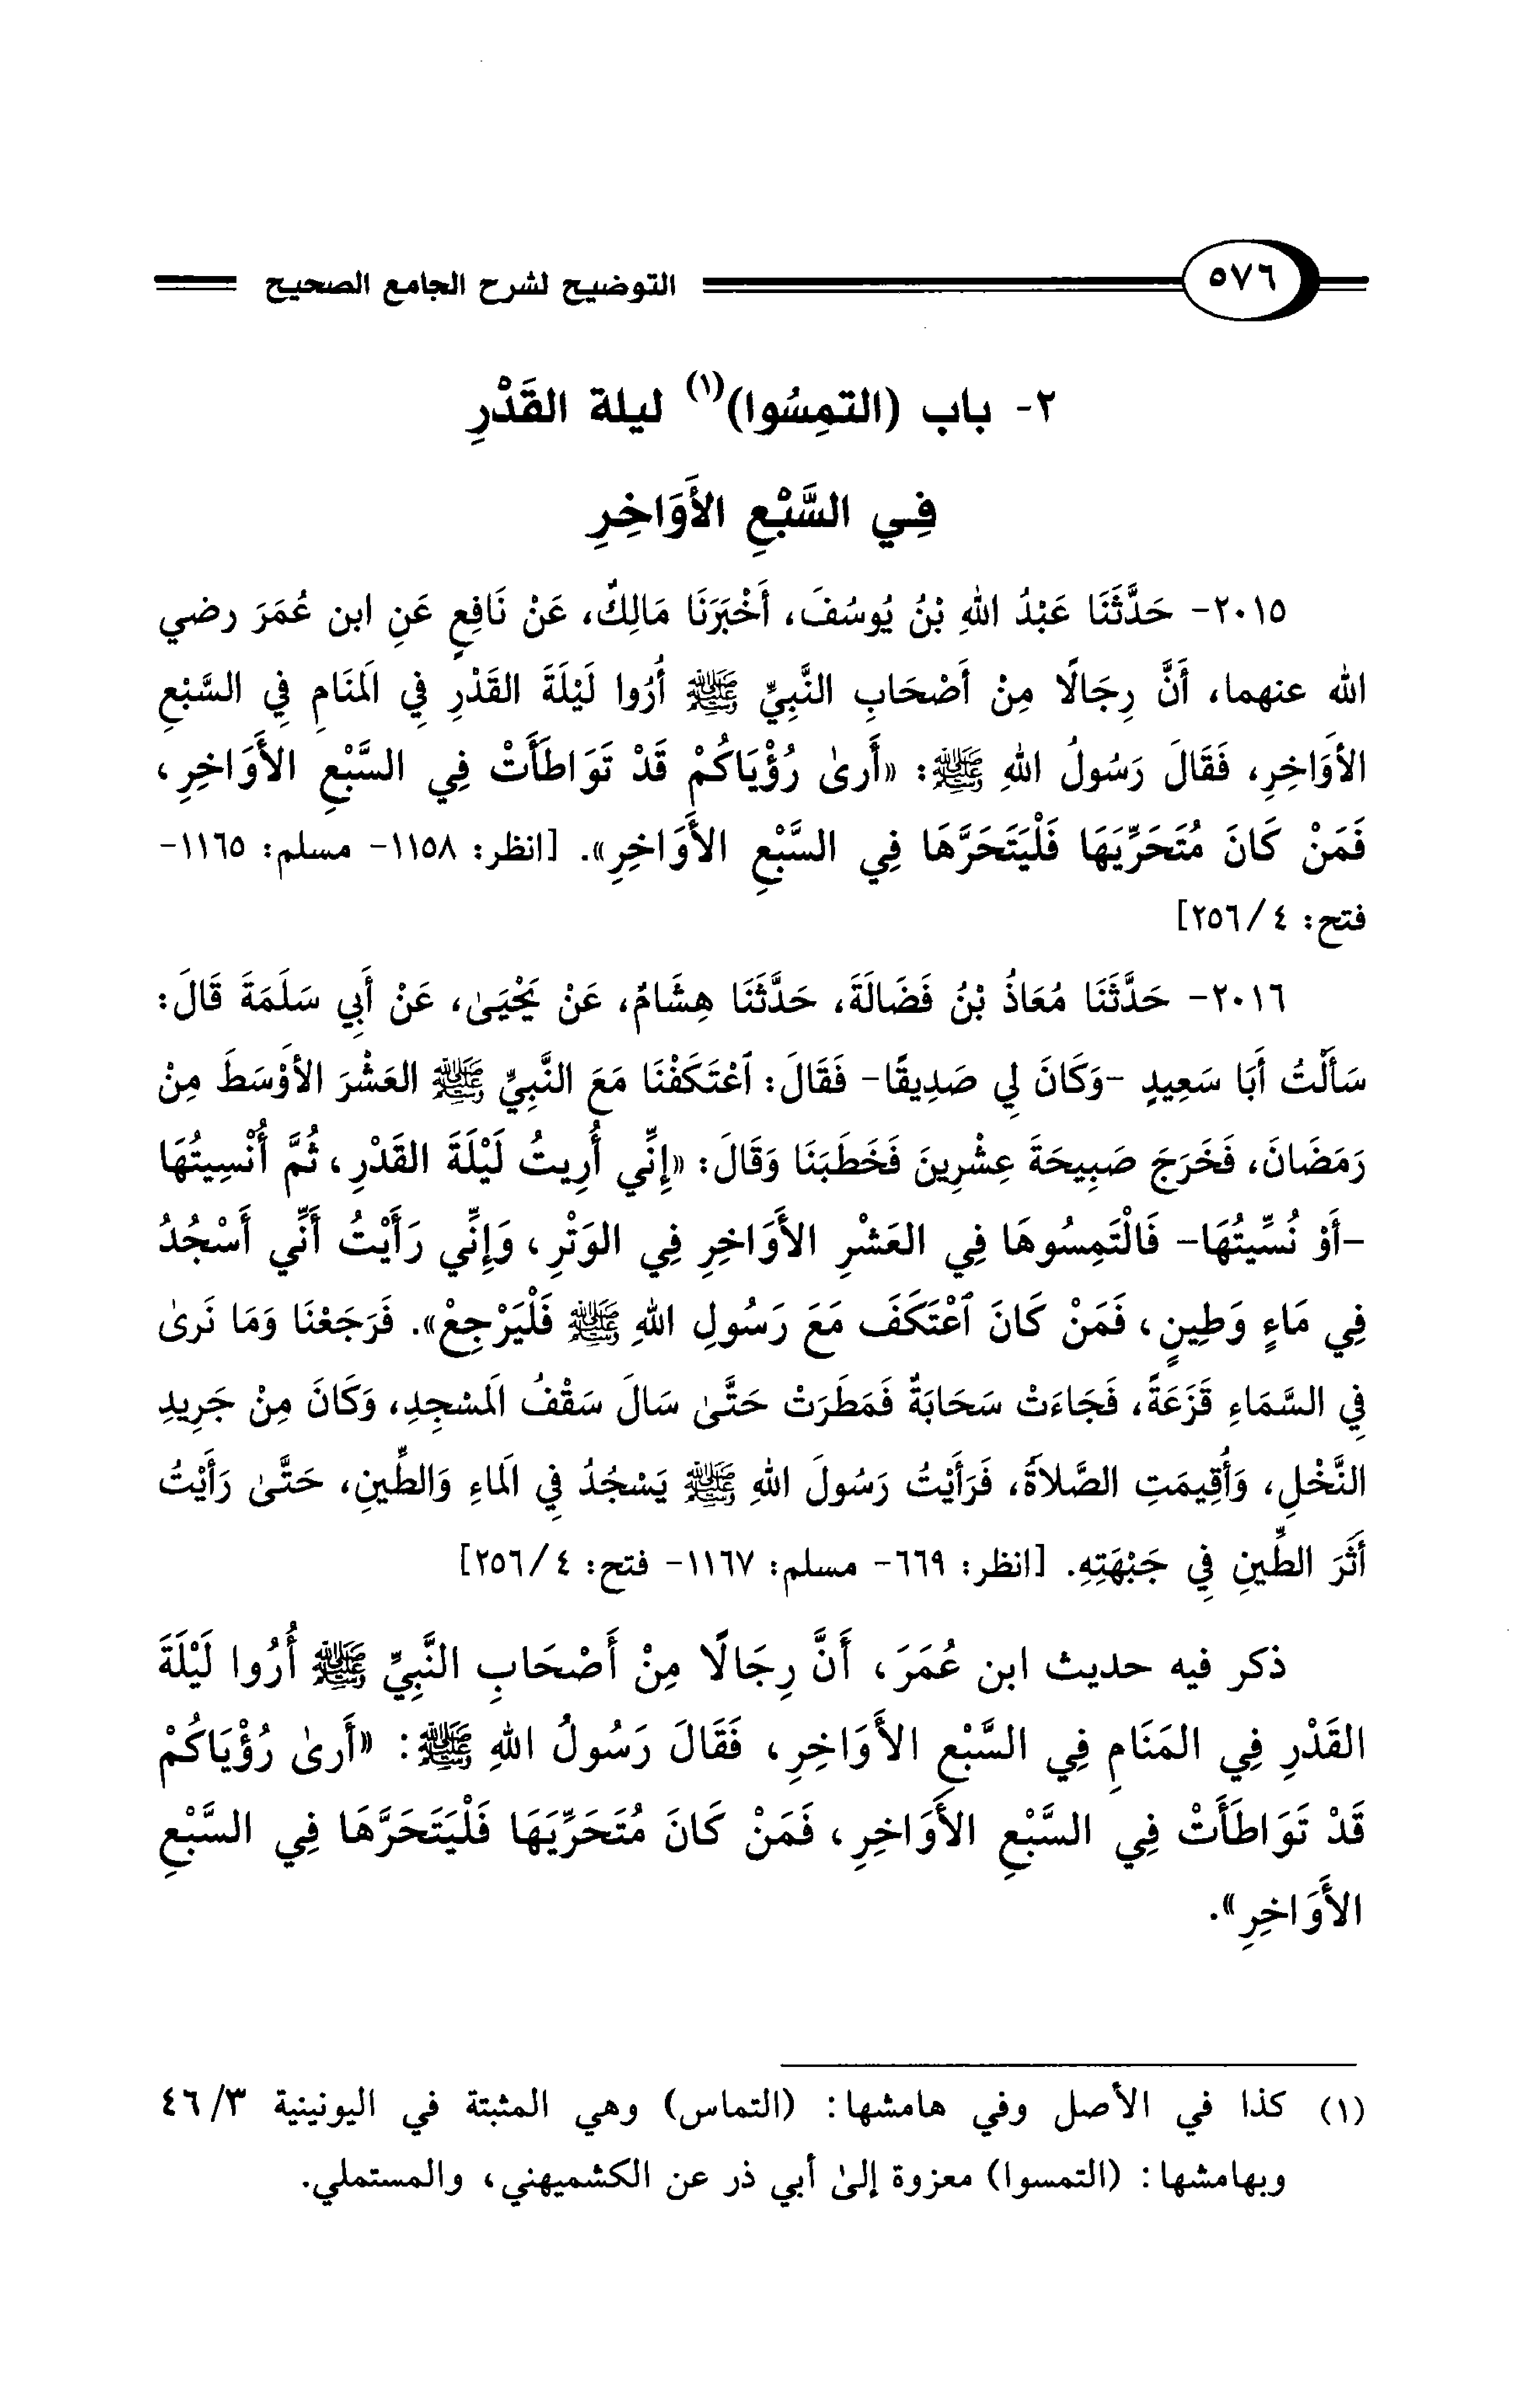 ٥٧٦ التوضيح لشرح الجامع الصحيح
٢- باب (التمِسُوا)(١) ليلة القَدْرِ
فِي السَّبْعِ الأَوَاخِرِ
٢٠١٥- حَدَّثَنَا عَبْدُ اللهِ بْنُ يُوسُفَ، أَخْبَرَنَا مَالِكٌ، عَنْ نَافِعٍ عَنِ ابن عُمَرَ رضي
الله عنهما، أَنَّ رِجَالًا مِنْ أَصْحَابِ النَّبِيِّ ﷺ أُرُوا لَيْلَةَ القَدْرِ فِي الَمنَامِ فِي السَّبْعِ
الأَوَاخِرِ، فَقَالَ رَسُولُ اللهِ ﷺ: «أَرىٰ رُؤْيَاكُمْ قَدْ تَوَاطَأَتْ فِي السَّبْعِ الأَوَاخِرِ،
فَمَنْ كَانَ مُتَحَرِّيَهَا فَلْيَتَحَرَّهَا فِي السَّبْعِ الأَوَاخِرِ». [انظر: ١١٥٨- مسلم: ١١٦٥-
فتح: ٤/٢٥٦]
٢٠١٦- حَدَّثَنَا مُعَاذُ بْنُ فَضَالَةَ، حَدَّثَنَا هِشَامٌ، عَنْ يَحْيَىٰ، عَنْ أَبِي سَلَمَةَ قَالَ:
سَأَلْتُ أَبَا سَعِيدٍ -وَكَانَ لِي صَدِيقًا- فَقَالَ: ٱعْتَكَفْنَا مَعَ النَّبِيِّ ﷺ العَشْرَ الأَوْسَطَ مِنْ
رَمَضَانَ، فَخَرَجَ صَبِيحَةَ عِشْرِينَ فَخَطَبَنَا وَقَالَ: «إِنِّي أُرِيتُ لَيْلَةَ القَدْرِ، ثُمَّ أُنْسِيتُهَا
-أَوْ نُسِّيتُهَا- فَالْتَمِسُوهَا فِي العَشْرِ الأَوَاخِرِ فِي الوَتْرِ، وَإِنِّي رَأَيْتُ أَنِّي أَسْجُدُ
فِي مَاءٍ وَطِينٍ، فَمَنْ كَانَ ٱعْتَكَفَ مَعَ رَسُولِ اللهِ ﷺ فَلْيَرْجِعْ». فَرَجَعْنَا وَمَا نَرىٰ
فِي السَّمَاءِ قَزَعَةً، فَجَاءَتْ سَحَابَةٌ فَمَطَرَتْ حَتَّىٰ سَالَ سَقْفُ الَمسْجِدِ، وَكَانَ مِنْ جَرِيدِ
النَّخْلِ، وَأُقِيمَتِ الصَّلاَةُ، فَرَأَيْتُ رَسُولَ اللهِ ﷺ يَسْجُدُ فِي الَماءِ وَالطِّينِ، حَتَّىٰ رَأَيْتُ
أَثَرَ الطِّينِ فِي جَبْهَتِهِ. [انظر: ٦٦٩- مسلم: ١١٦٧- فتح: ٤/٢٥٦]
ذكر فيه حديث ابن عُمَرَ، أَنَّ رِجَالًا مِنْ أَصْحَابِ النَّبِيِّ ﷺ أُرُوا لَيْلَةَ
القَدْرِ فِي المَنَامِ فِي السَّبْعِ الأَوَاخِرِ، فَقَالَ رَسُولُ اللهِ ﷺ: «أَرىٰ رُؤْيَاكُمْ
قَدْ تَوَاطَأَتْ فِي السَّبْعِ الأَوَاخِرِ، فَمَنْ كَانَ مُتَحَرِّيَهَا فَلْيَتَحَرَّهَا فِي السَّبْعِ
الأَوَاخِرِ».
(١) كذا في الأصل وفي هامشها: (التماس) وهي المثبتة في اليونينية ٣/٤٦
وبهامشها: (التمسوا) معزوة إلىٰ أبي ذر عن الكشميهني، والمستملي.